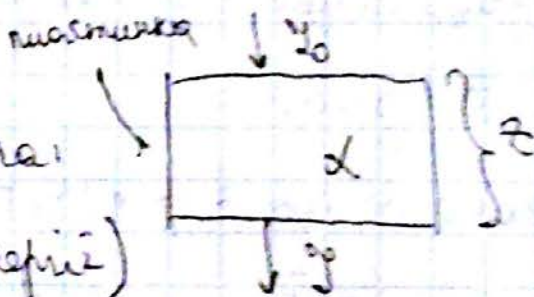 пластинка J₀
на:
α
z
J